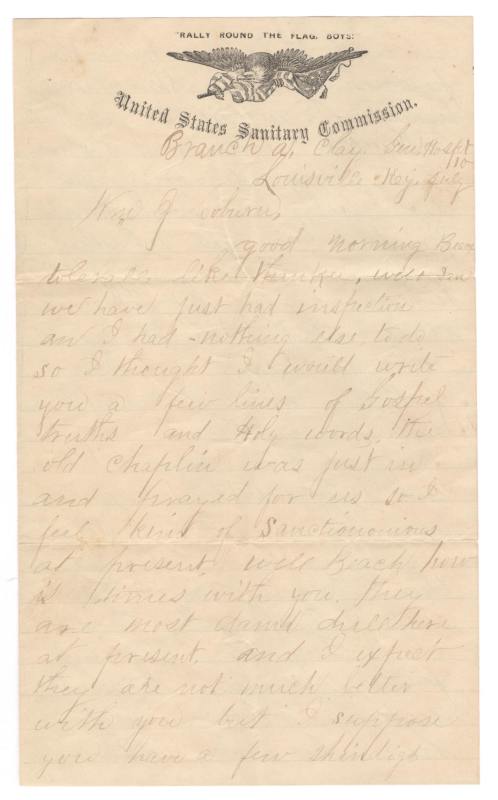 "RALLY ROUND THE FLAG, BOYS!
United States Sanitary Commission.
Branch a, Clay Gen Hospt
Louisville Ky July 10
Wm J Coburn,
good morning
tolerable like thankee, well
we have just had inspection
an I had nothing else to do
so I thought I would write
you a few lines of Gospel
truths and Holy words, the
old chaplin was just in
and prayed for us so I
feel kind of Sanctionomious
at present, well Beach how
is times with you. they
are most damd dull here
at present, and I expect
they are not much better
with you but I suppose
you have a few